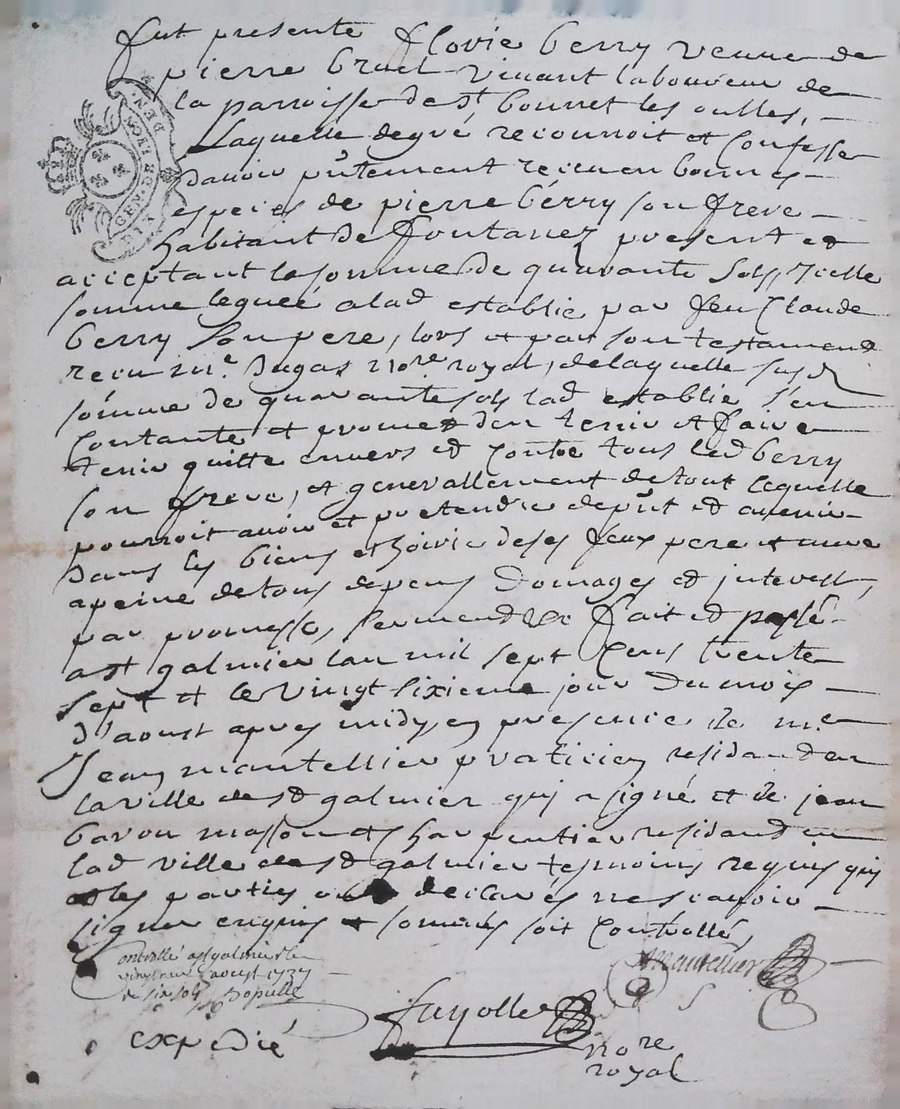 fut presente flovie berry veuve de
pierre bruel vivant laboureur de
la parroisse de st bonnet les oulles,
Laquelle degré reconnoit et Confesse
davoir pntement receu en bonnes
especes de pierre berry son frere
habitant de fontanez present et
acceptant la somme de quarante sols, Icelle
somme leguée a lad establie par feu Claude
berry son pere, lors et par son testament
receu me Dugas nore royal, de laquelle susd
somme de quarante sols lad establie s'en
Contante et promet d'en tenir et faire
tenir quitte envers et contre tous led berry
son frere, et generallement de tout ce quelle
pourroit avoir et pretendre de pnt et avenir
Dans les biens et hoirie de ses feux pere et mere
a peine de tous depens Domages et interest,
par promesse, serment &c fait et passé
a st galmier lan mil sept Cens trente
sept et le vingt sixieme jour Du mois
d'aoust apres midy en presence de me
Jean mantellier praticien residand en
la ville de st galmier qui a signé et de jean
baron masson et charpentier residand en
lad ville de st galmier tesmoins requis qui
et les parties declarés ne scavoir
signer enquis et sommés soit Controllé,
Mantellier
ontrollé a st galmier le
aoust 1737
de six sols
fayolle
nore
royal
expedié
GEN. DE LION